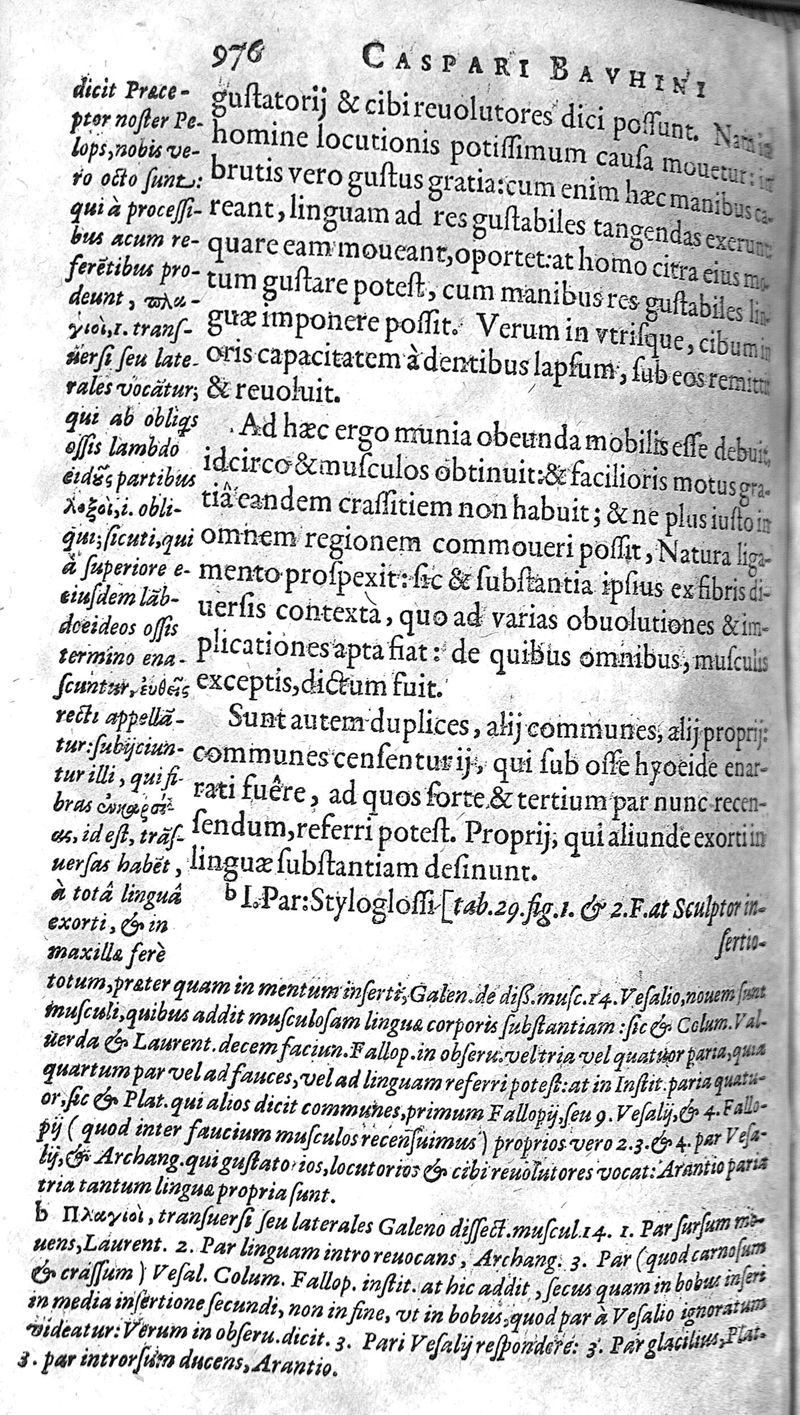 976 CASPARI BAVHINI
gustatorij & cibi reuolutores dici possunt. Nam in
homine locutionis potissimum causa mouetur: in
brutis vero gustus gratia: cum enim hæc manibus ca-
reant, linguam ad res gustabiles tangendas exerunt
quare eam moueant, oportet: at homo citra eius mo-
tum gustare potest, cum manibus res gustabiles lin-
guæ imponere possit. Verum in vtrisque, cibum in
oris capacitatem à dentibus lapsum, sub eos remittit
& reuoluit.
Ad hæc ergo munia obeunda mobilis esse debuit,
idcirco & musculos obtinuit: & facilioris motus gra-
tiâ eandem crassitiem non habuit; & ne plus iusto in
omnem regionem commoueri possit, Natura liga-
mento prospexit: sic & substantia ipsius ex fibris di-
uersis contextà, quo ad varias obuolutiones & im-
plicationes apta fiat: de quibus omnibus, musculis
exceptis, dictum fuit.
Sunt autem duplices, alij communes, alij proprij:
communes censentur ij, qui sub osse hyoeide enar-
rati fuêre, ad quos forte & tertium par nunc recen-
sendum, referri potest. Proprij, qui aliunde exorti in
linguæ substantiam desinunt.
b I. Par: Styloglossi [tab. 29. fig. 1. & 2. F. at Sculptor in-
sertio-
dicit Præce-
ptor noster Pe-
lops, nobis ve-
ro octo sunt:
qui à processi-
bus acum re-
ferẽtibus pro-
deunt, πλα-
γιοὶ, 1. trans-
uersi seu late-
rales vocãtur;
qui ab obliqs
ossis lambdo
eidοῦς partibus
λοξοὶ, i. obli-
qui; sicuti, qui
à superiore e-
eiusdem lãb-
doeideos ossis
termino ena-
scuntur, ἐυθεῖς
recti appellã-
tur: subijciun-
tur illi, qui fi-
bras ἐγκαρσί-
ας, id est, trãs-
uersas habẽt,
à totâ linguâ
exorti, & in
maxilla ferè
totum, præter quam in mentum inserti, Galen. de diss. musc. 14. Vesalio, nouem sunt
musculi, quibus addit musculosam linguæ corporis substantiam: sic & Colum. Val-
uerda & Laurent. decem faciun. Fallop. in obseru. vel tria vel quatuor paria, quia
quartum par vel ad fauces, vel ad linguam referri potest: at in Instit. paria quatu-
or, sic & Plat. qui alios dicit communes, primum Fallopij, seu 9. Vesalij, & 4. Fallo-
pij (quod inter faucium musculos recensuimus) proprios vero 2. 3. & 4. par Vesa-
lij, & Archang. qui gustatorios, locutorios & cibi reuolutores vocat: Arantio paria
tria tantum linguæ propria sunt.
b Πλαγιοὶ, transuersi seu laterales Galeno dissect. muscul. 14. 1. Par sursum mo-
uens, Laurent. 2. Par linguam intro reuocans, Archang. 3. Par (quod carnosum
& crassum) Vesal. Colum. Fallop. instit. at hic addit, secus quam in bobus inseri
in media insertione secundi, non in fine, vt in bobus, quod par à Vesalio ignoratum
videatur: Verum in obseru. dicit. 3. Pari Vesalij respondere: 3. Par glacilius, Plat.
3. par introrsum ducens, Arantio.